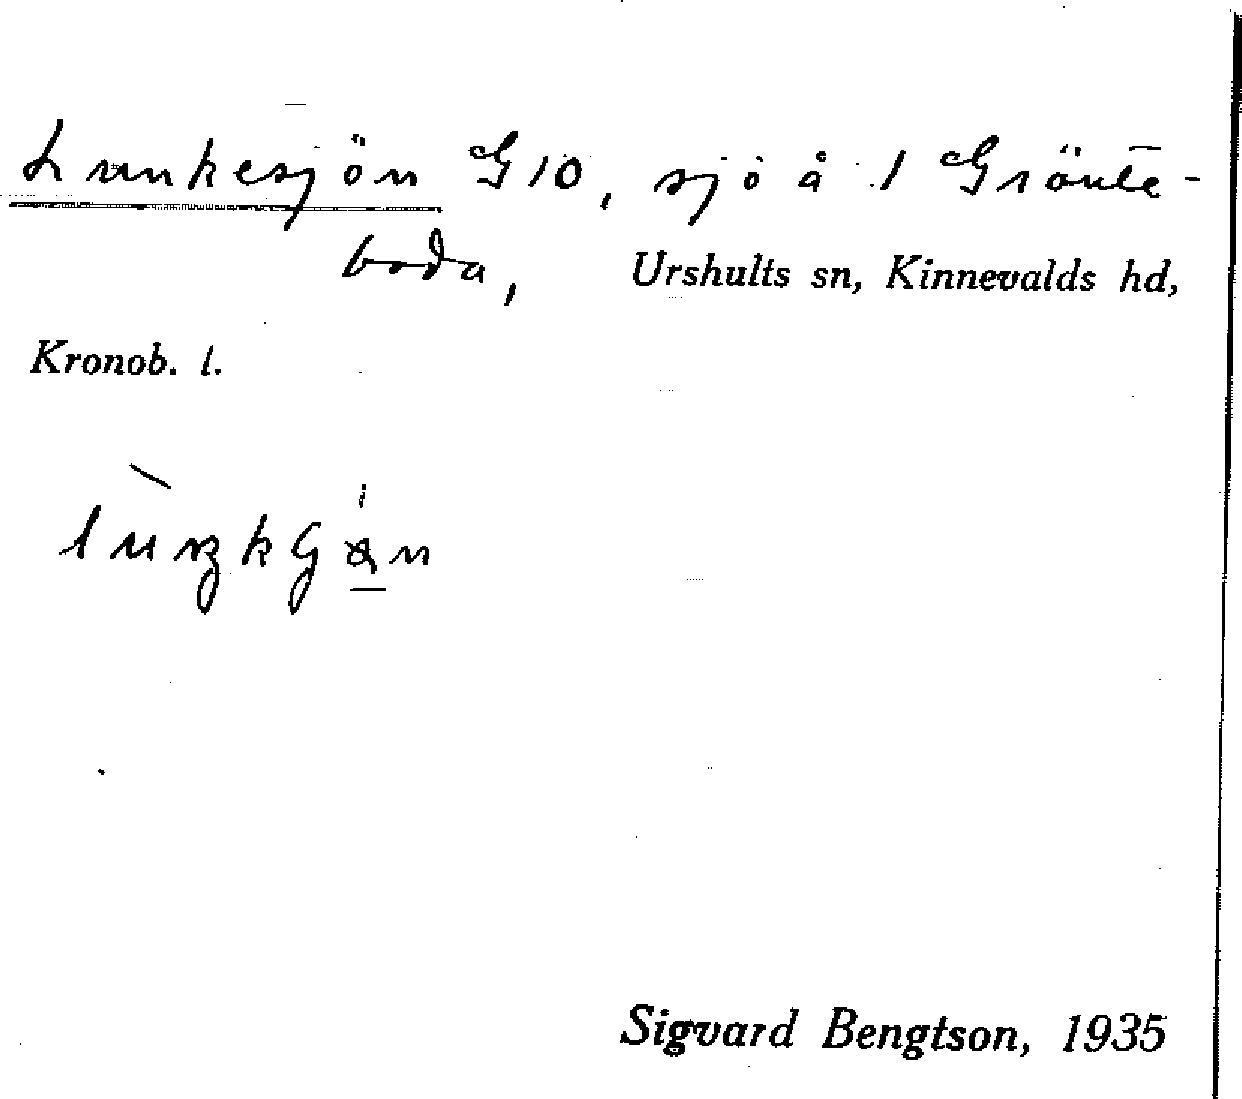 Lunkesjön G10, sjö å 1 Grönte-
boda, Urshults sn, Kinnevalds hd,
Kronob. l.
Sigvard Bengtson, 1935